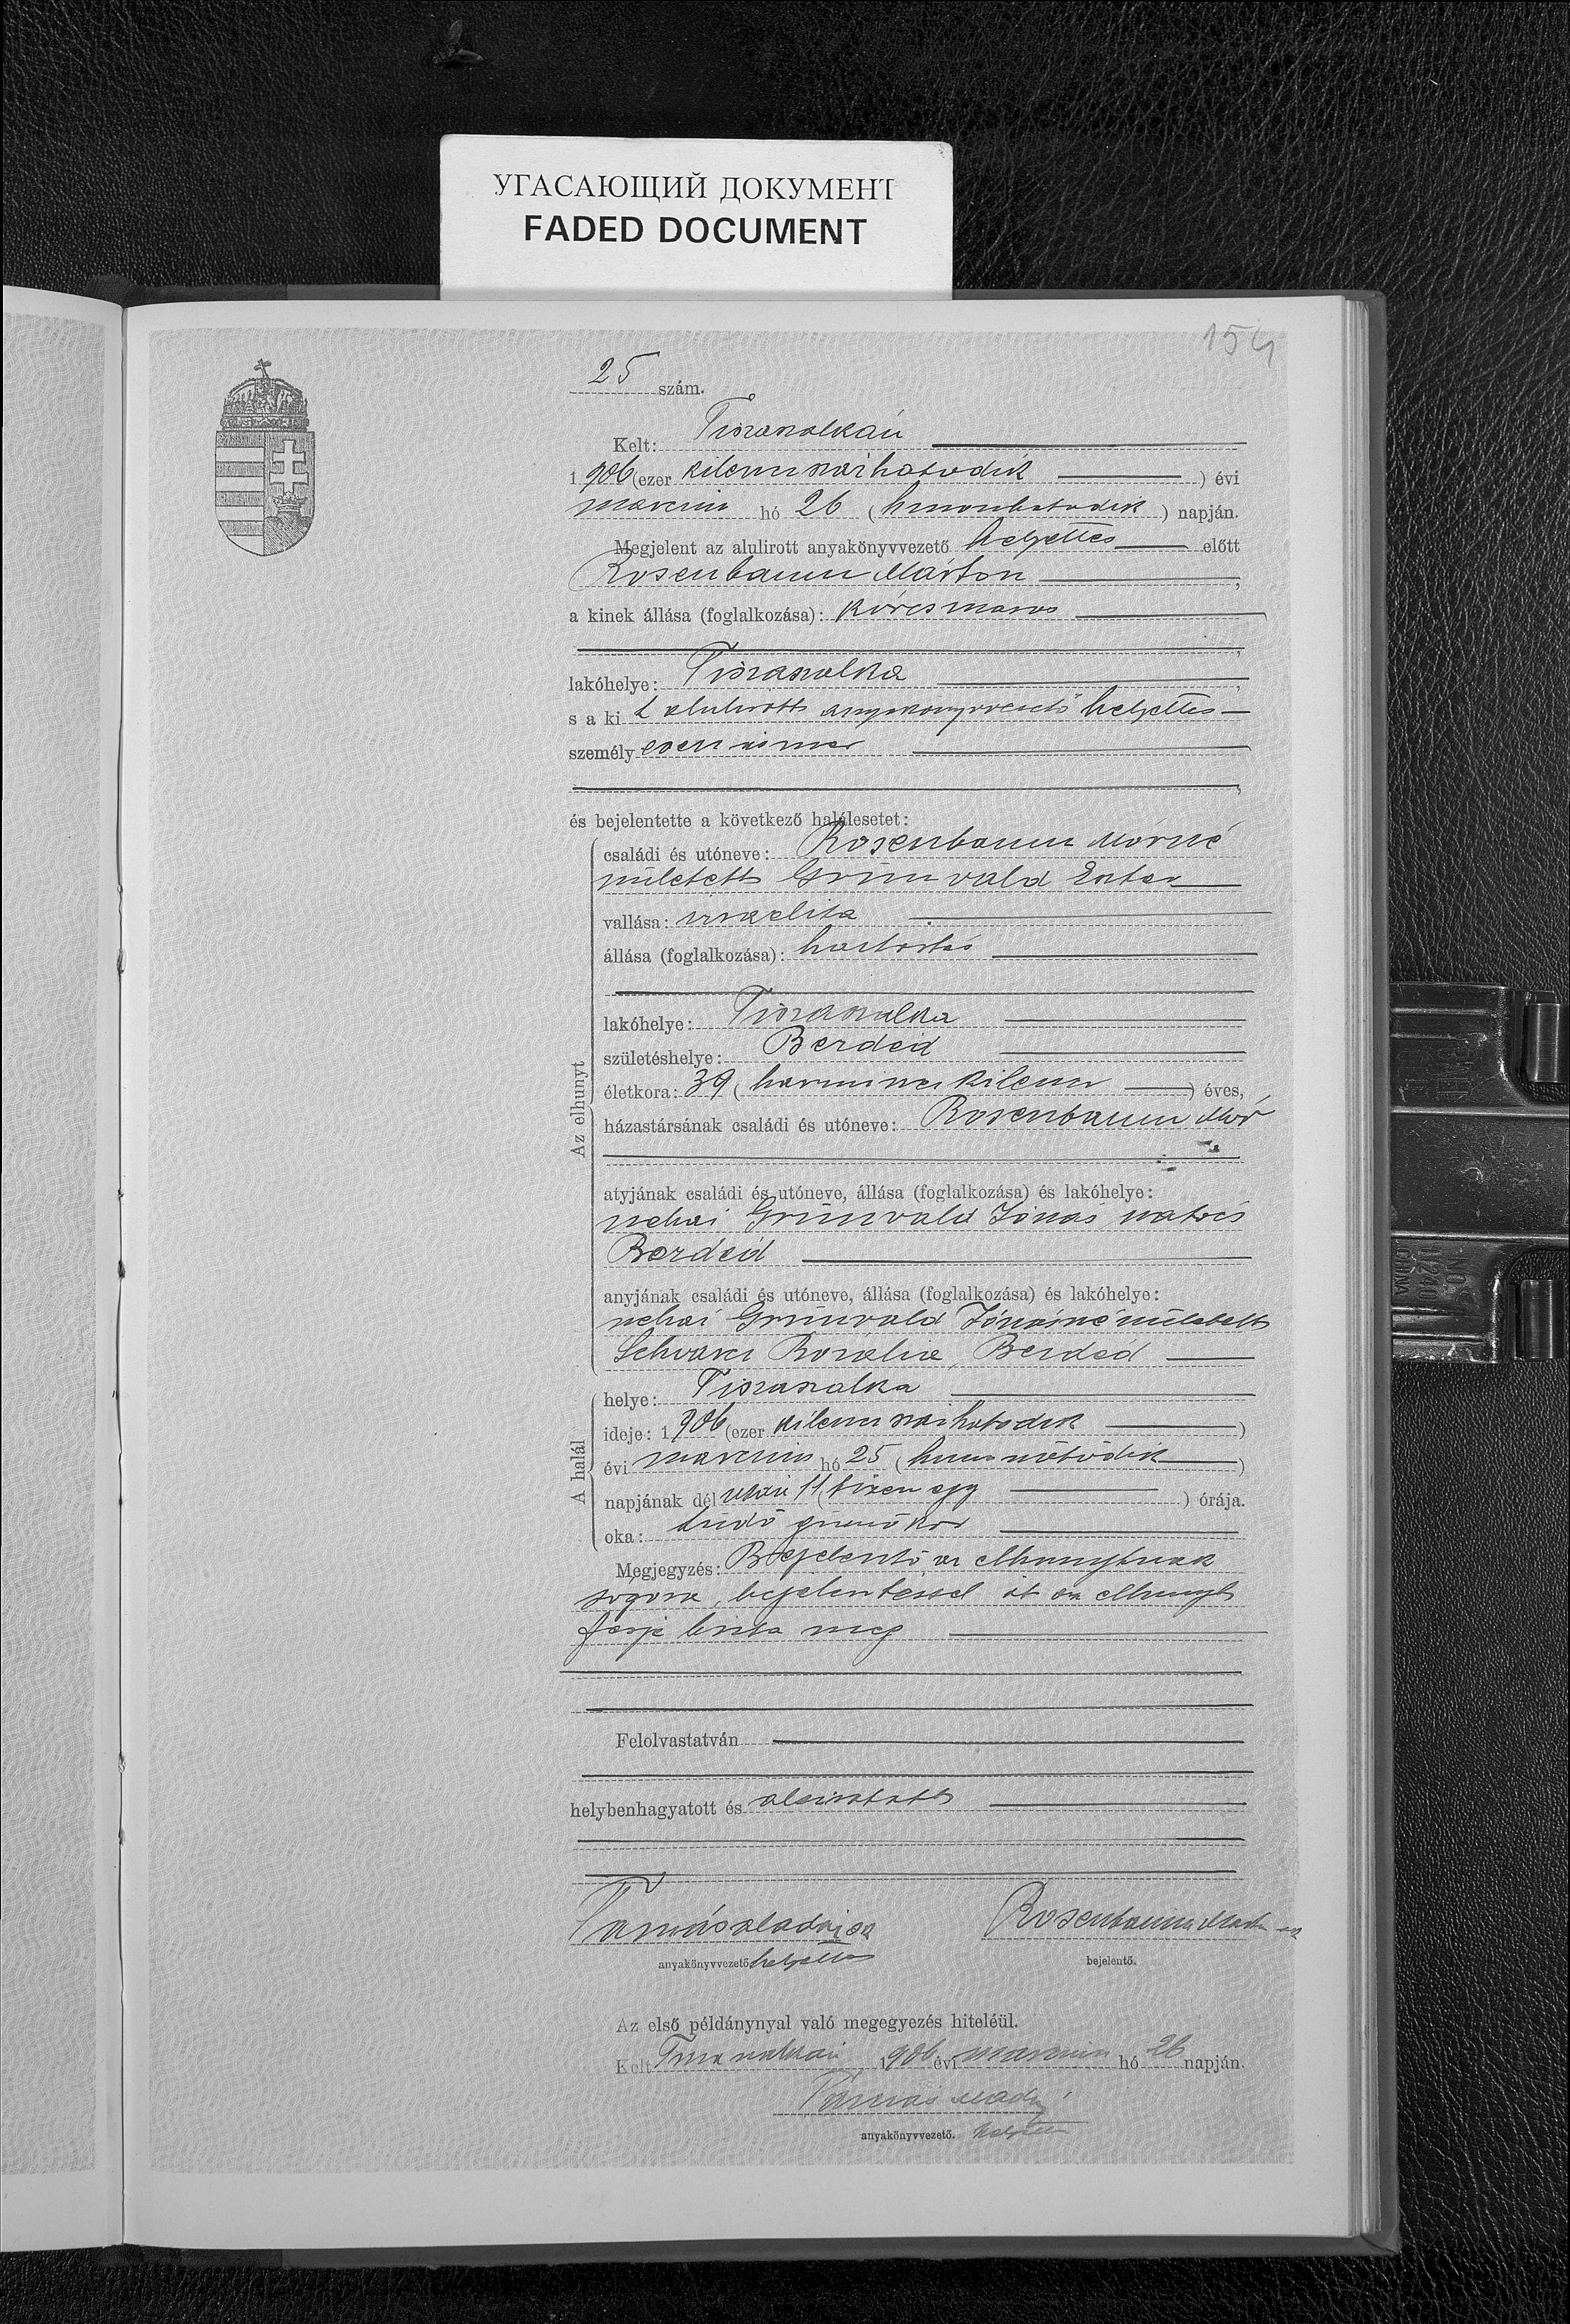 УГАСАЮЩИЙ ДОКУМЕНТ
FADED DOCUMENT
154
25 szám.
Kelt: Tiszaszalkán
1906 (ezer kilenczszázhatodik) évi
marczius hó 26 (huszonhatodik) napján.
Megjelent az alulirott anyakönyvvezető helyettes előtt
Rosenbaum Márton,
a kinek állása (foglalkozása): korcsmaros
lakóhelye: Tiszaszalka
s a ki t alulirott anyakönyvvezető helyettes
személyesen ismer
és bejelentette a következő halálesetet:
Az elhunyt
családi és utóneve: Rosenbaum Mórné
született Grünvald Eszter
vallása: izraelita
állása (foglalkozása): háztartás
lakóhelye: Tiszaszalka
születéshelye: Berdéd
életkora: 39 (harmincz kilencz) éves,
házastársának családi és utóneve: Rosenbaum Mór
atyjának családi és utóneve, állása (foglalkozása) és lakóhelye:
nehai Grünvald Jónás
Berdéd
anyjának családi és utóneve, állása (foglalkozása) és lakóhelye:
nehai Grünvald Jónásné született
Schvarcz Rozália, Berdéd
A halál
helye: Tiszaszalka
ideje: 1906 (ezer kilenczszázhatodik)
évi marczius hó 25 (huszonötödik)
napjának délután 11 (tizenegy) órája.
oka: tüdő gümőkór
Megjegyzés: Bejelentő az elhunytnak
sógora, bejelentéssel őt az elhunyt
férje bizta meg
Felolvastatván
helybenhagyatott és aláiratott
Tamás Aladár
Rosenbaum Márton
anyakönyvvezető helyettes
bejelentő.
Az első példánynyal való megegyezés hiteléül.
Kelt Tiszaszalkán 1906 évi marczius hó 26 napján.
Tamás Aladár
anyakönyvvezető. helyettes